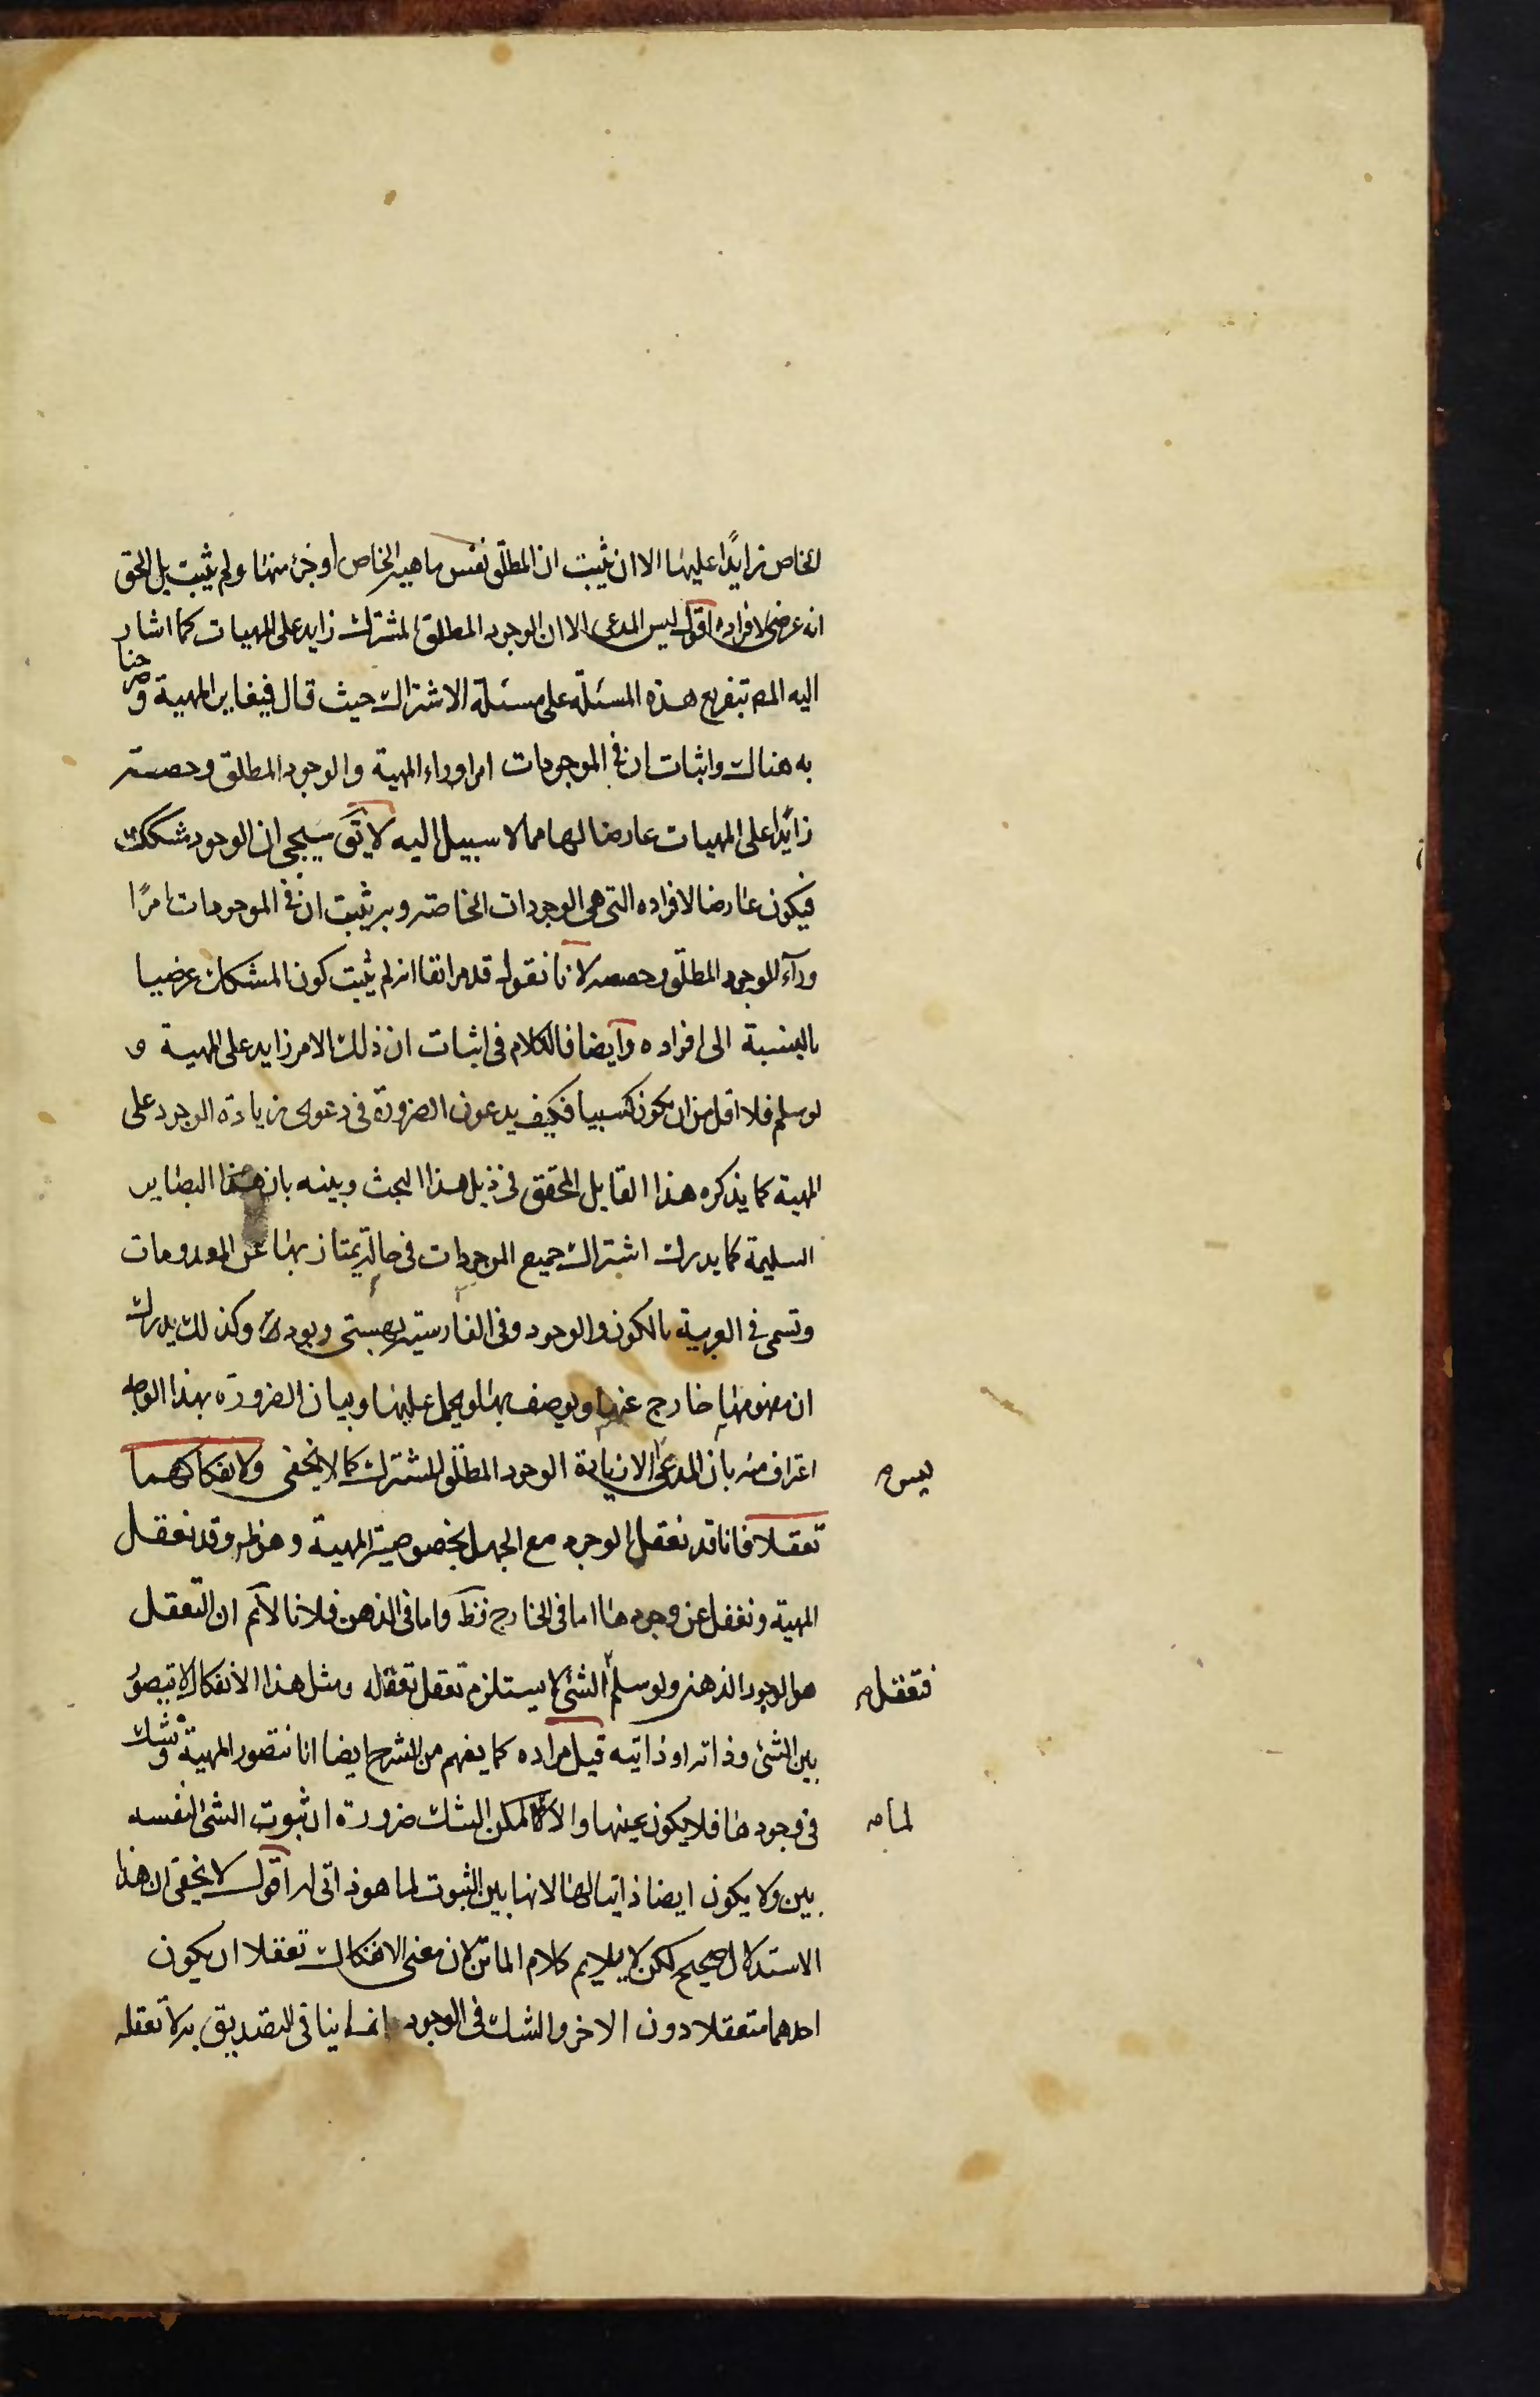 الخاص زايدًا عليها الا ان يثبت ان المطلق نفس ماهية الخاص او جزئ منها ولم يثبت بل الحق
انه عرضى لافراده اقول ليس المدعى الا ان الوجود المطلق المشترك زايد على المهيات كما اشار
اليه المص بتفريع هذه المسئلة على مسئلة الاشتراك حيث قال فيغاير المهية وصرحنا
به هناك واثبات ان فى الموجودات امرا وراء المهية والوجود المطلق وحصته
زائدا على المهيات عارضا لها مما لا سبيل اليه لا يق سيجى ان الوجود مشكك
فيكون عارضا لافراده التى هى الوجودات الخاصة وبه يثبت ان فى الموجودات امرًا
ورآء الوجود المطلق وحصصه لانا نقول قد مر انفا انه لم يثبت كون المشكك عرضيا
بالنسبة الى افراده وايضا فالكلام فى اثبات ان ذلك الامر زايد على المهية و
لو سلم فلا اقل من ان يكون كسبيا فكيف يدعون الضرورة فى دعوى زيادة الوجود على
المهية كما يذكره هذا القايل المحقق فى ذيل هذا البحث وبينه بان هذا البصاير
السليمة كما يدرك اشتراك جميع الموجودات فى حالة يمتاز بها عن المعدومات
وتسمى فى العربية بالكون والوجود وفى الفارسية بهستى وبودن وكذلك يدرك
ان مفهومها خارج عنها ويوصف بها ويحمل عليها وبيان الضرورة بهذا الوجه
اعتراف منه بان المدعى ليس الا زيادة الوجود المطلق المشترك كما لا يخفى ولانفكاكهما
تعقلا فانا قد نعقل الوجود مع الجهل بخصوصية المهية وهو ظ وقد نعقل
المهية ونغفل عن وجودها اما فى الخارج فظ واما فى الذهن فلانا لا نم ان التعقل
هو الوجود الذهنى ولو سلم فتعقل الشئ لا يستلزم تعقل تعقله ومثل هذا الانفكاك لا يتصور
بين الشئ وذاته او ذاتيه قيل مراده كما يفهم من الشرح ايضا انا نتصور المهية ونشك
فى وجودها فلا يكون عينها والا لما امكن الشك ضرورة ان ثبوت الشئ لنفسه
بين ولا يكون ايضا ذاتيا لها لانها بين الثبوت لما هو ذاتى له اقول لا يخفى ان هذا
الاستدلال صحيح لكن لا يلايم كلام الماتن لان معنى الانفكاك تعقلا ان يكون
احدهما متعقلا دون الاخر والشك فى الوجود انما ينافى التصديق به لا تعقله